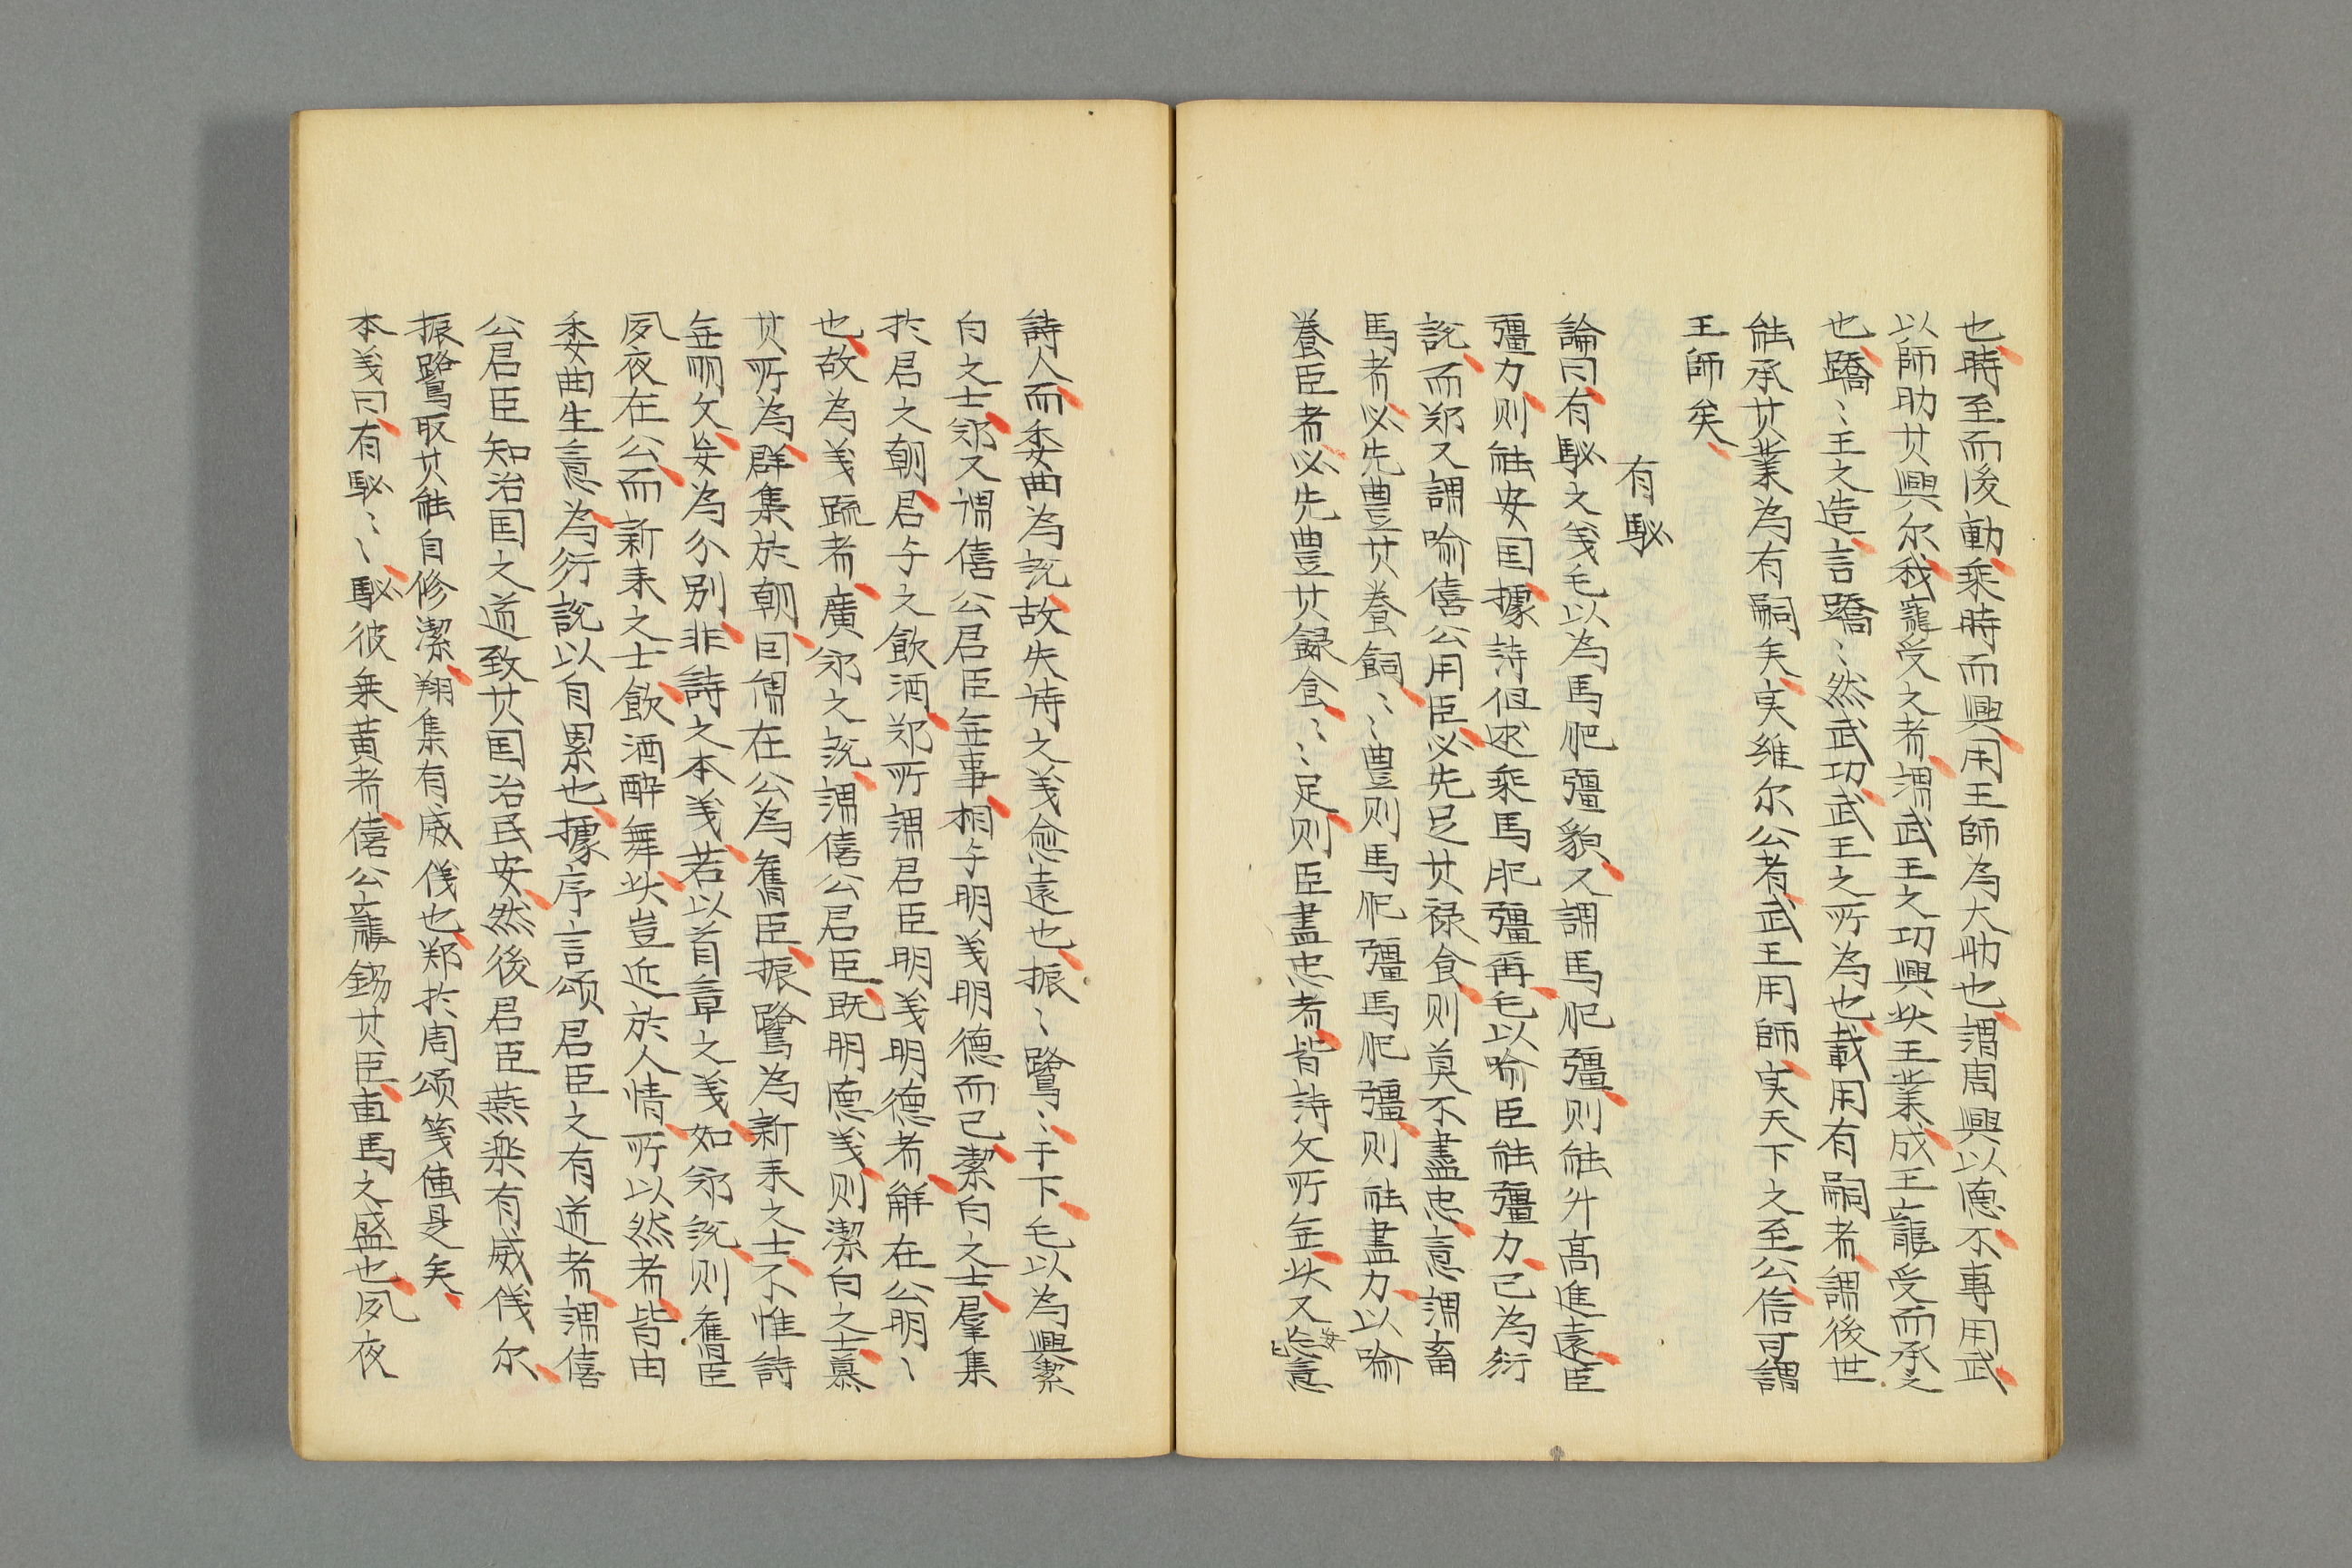 也時至而後動乗時而興用王師為大助也謂周興以德不專用武
以師助其興尔我寵受之者謂武王之功興此王業成王寵受而承之
也蹻〻王之造言蹻〻然武功武王之所為也載用有嗣者謂後世
能承其業為有嗣矣实維尔公者武王用師实天下之至公信可謂
王師矣
有駜
論曰有駜之義毛以為馬肥彊貌又謂馬肥彊则能升高進遠臣
彊力则能安国據詩但述乘馬肥彊再毛以喻臣能彊力已為衍
説而郑又謂喻僖公用臣必先足其禄食则莫不盡忠意謂畜
馬者必先豊其養飼〻〻豊则馬肥彊馬肥彊则能盡力以喻
養臣者必先豊其録食〻〻足则臣盡忠者皆詩文所無此又妄意
詩人而委曲為説故失詩之義愈遠也振〻鷺〻于下毛以為興潔
白之士郑又謂僖公君臣無事相与明義明德而已潔白之士羣集
扵君之朝君与之飲酒郑所謂君臣明義明德者觧在公明〻
也故為義疏者廣郑之説謂僖公君臣既明德義则潔白之士慕
其所為群集於朝曰傋在公為舊臣振鷺為新来之士不惟詩
無明文妄為分别非詩之本義若以首章之義如郑説则舊臣
夙夜在公而新来之士飲酒醉舞此豈近於人情所以然者皆由
委曲生意為衍説以自累也據序言頌君臣之有道者謂僖
公君臣知治国之道致其国治民安然後君臣燕楽有威儀尔
振鷺取其能自修潔翔集有威儀也郑扵周頌箋傳是矣
本義曰有駜〻〻駜彼乗黄者僖公寵錫其臣車馬之盛也夙夜